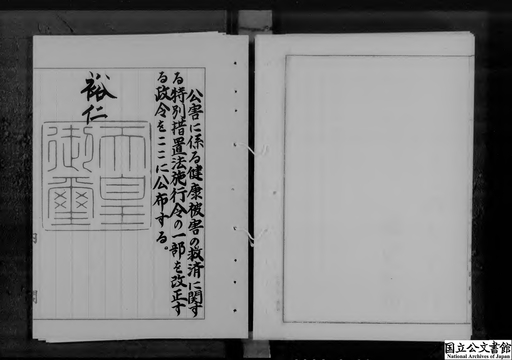 公害に係る健康被害の救済に関す
る特別措置法施行令の一部を改正す
る政令をここに公布する。
裕仁
天皇
御璽
国立公文書館
National Archives of Japan